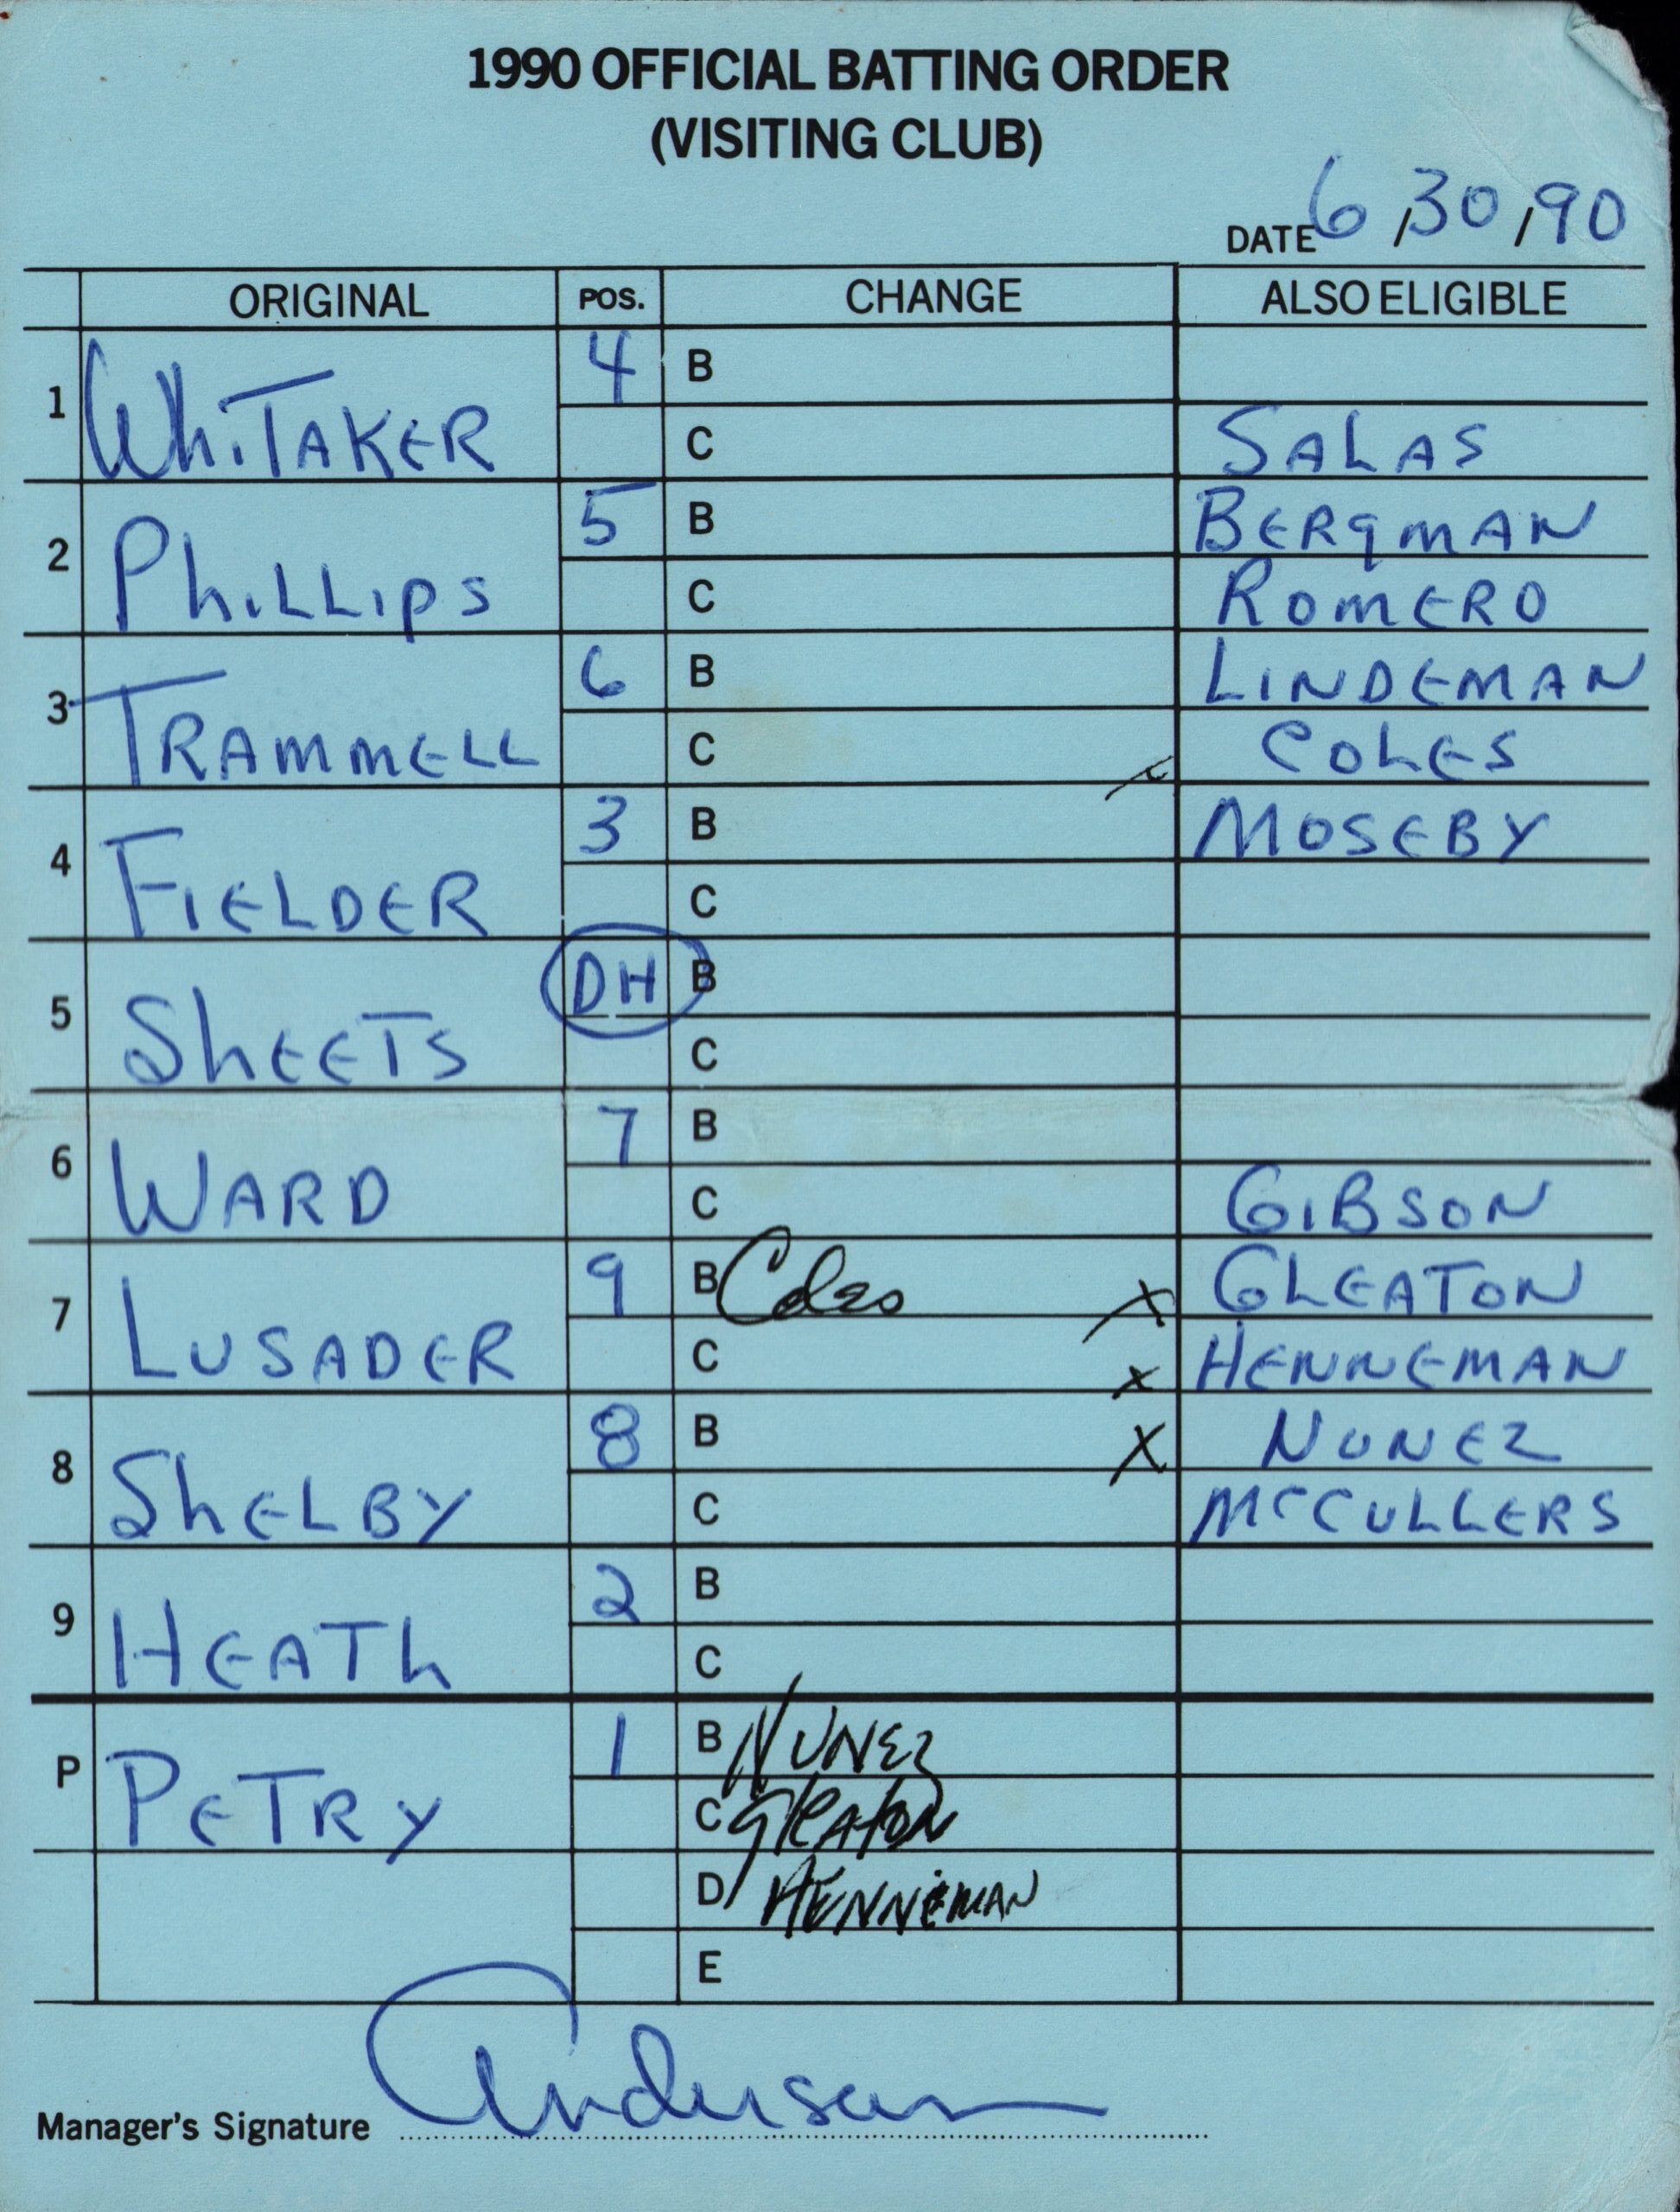 1990 OFFICIAL BATTING ORDER
(VISITING CLUB)
DATE 6/30/90
ORIGINAL POS. CHANGE ALSO ELIGIBLE
1 WhiTAKER 4 B
C SALAS
2 PhiLLipS 5 B BERgMAN
C ROMERO
3 TRAMMELL 6 B LINDEMAN
C COLES
4 FIELDER 3 B MOSEBY
C
5 ShEETS DH B
C
6 WARD 7 B
C GIBSON
7 LUSADER 9 B Coles X GLEATON
C X HENNEMAN
8 ShELBY 8 B X NUNEZ
C McCULLERS
9 HEATh 2 B
C
P PETRY 1 B NUNEZ
C GleAtoN
D HENNEMAN
E
Manager's Signature Anderson